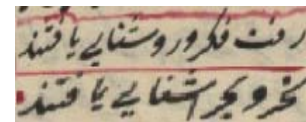 رفت فکر و روشنایی یافتند
نحر و بحر اشنایی یافتند